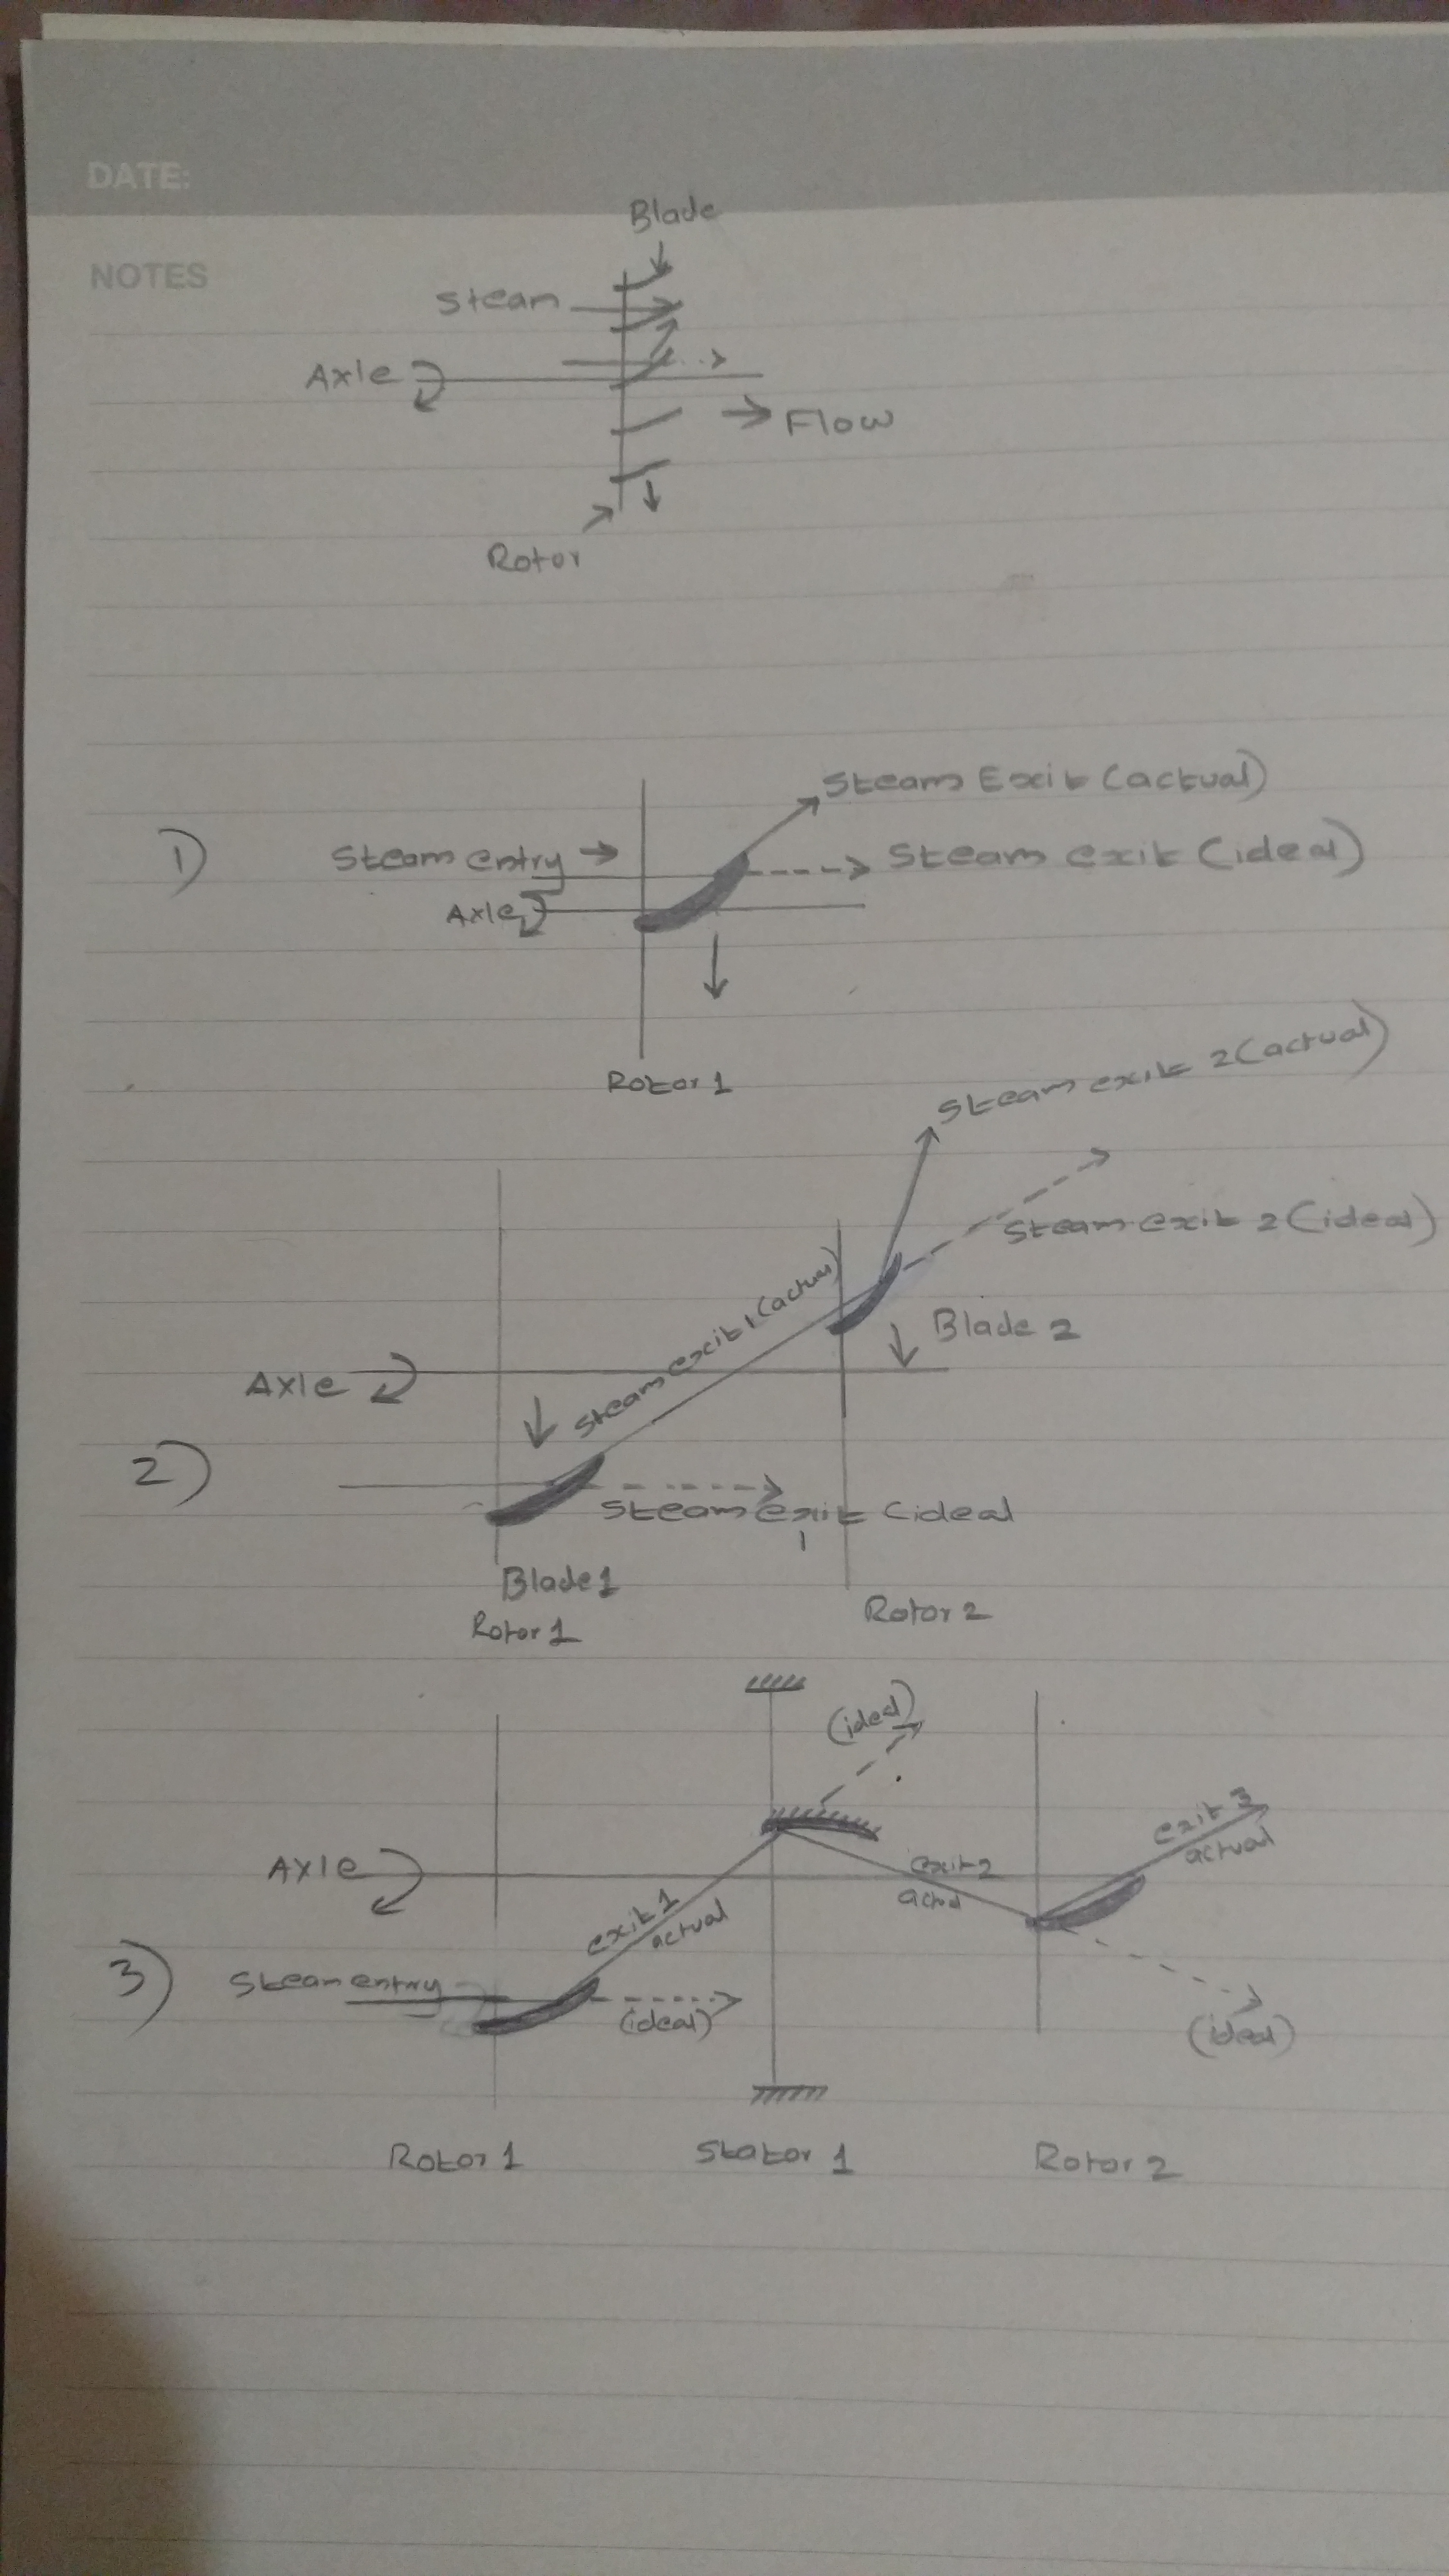 DATE:
NOTES
Blade
Steam
Axle
Flow
Rotor
Steam Exit (actual)
1)
Steam entry
Steam exit (ideal)
Axle
Rotor 1
Steam exit 2 (actual)
Steam exit 2 (ideal)
Steam exit 1 (actual)
Blade 2
Axle
2)
Steam exit (ideal
1
Blade 1
Rotor 2
Rotor 1
(ideal)
exit 3
actual
Axle
exit 2
exit 1
actual
3)
Steam entry
(ideal)
(ideal)
Rotor 1
Stator 1
Rotor 2